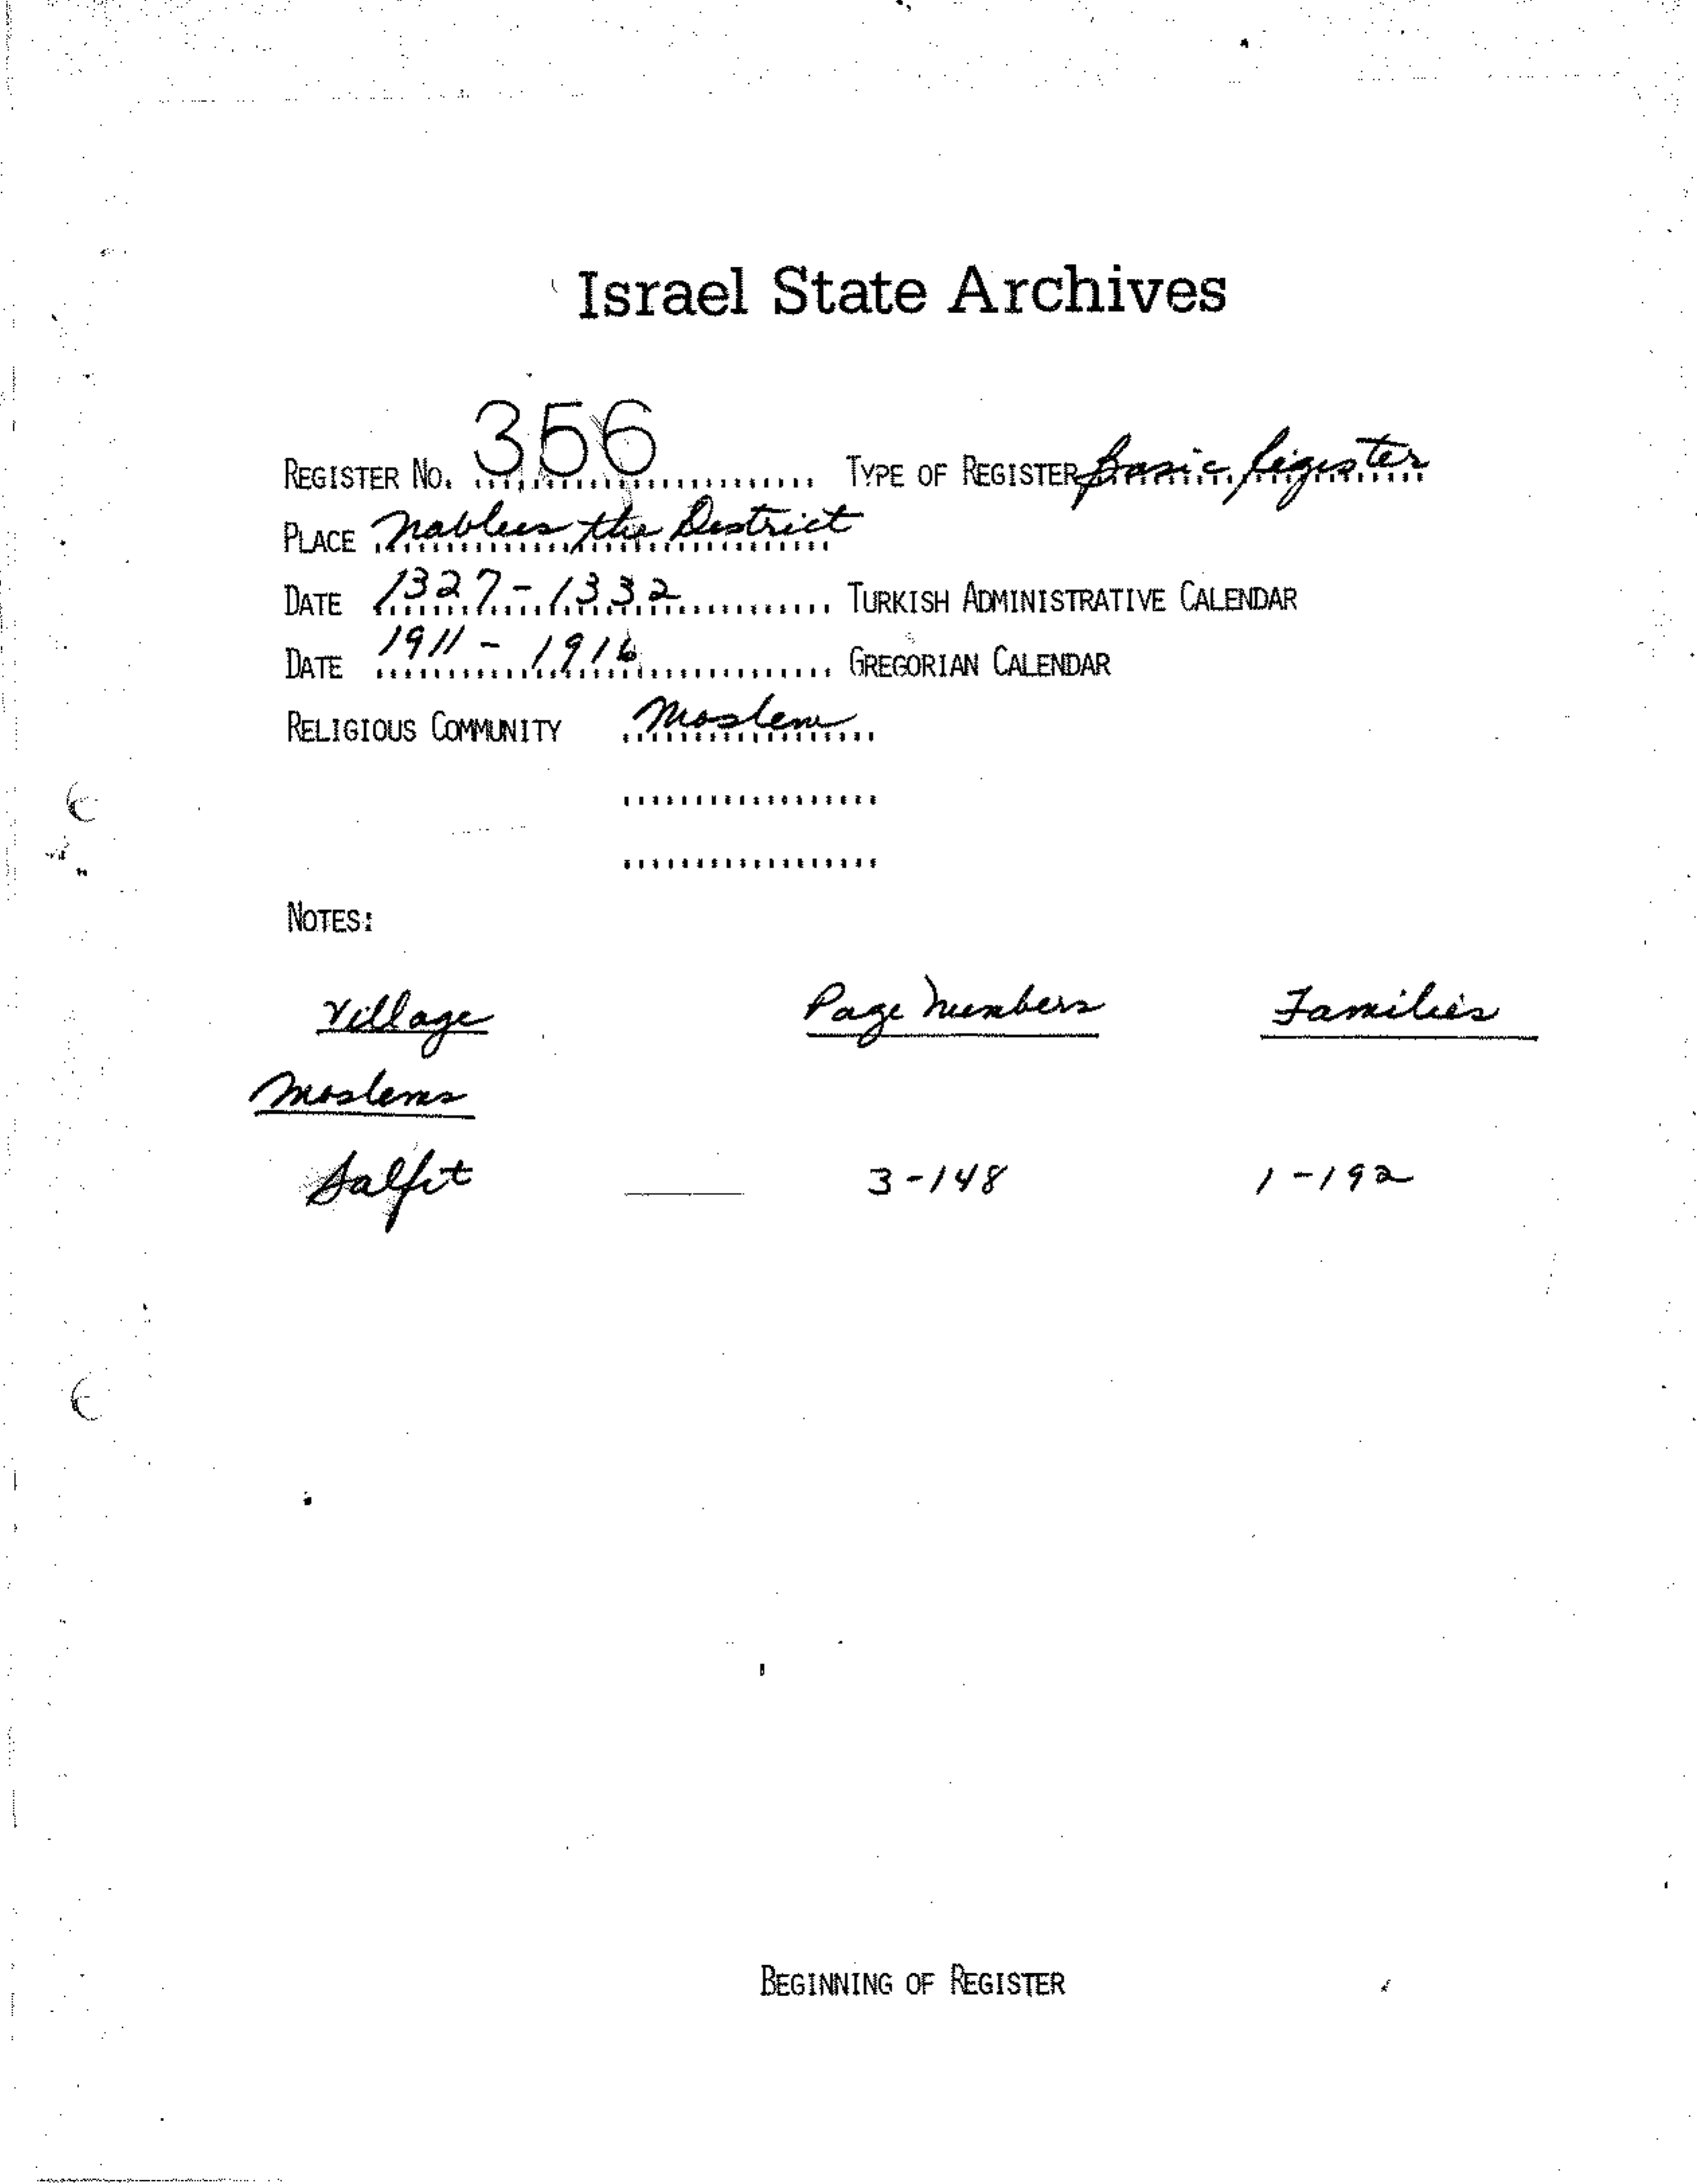 Israel State Archives
REGISTER NO. 356 TYPE OF REGISTER Basic Register
PLACE Nablus the District
DATE 1327-1332 TURKISH ADMINISTRATIVE CALENDAR
DATE 1911-1916 GREGORIAN CALENDAR
RELIGIOUS COMMUNITY Moslem
NOTES:
Village Page Numbers Families
Moslems
Salfit 3-148 1-192
BEGINNING OF REGISTER